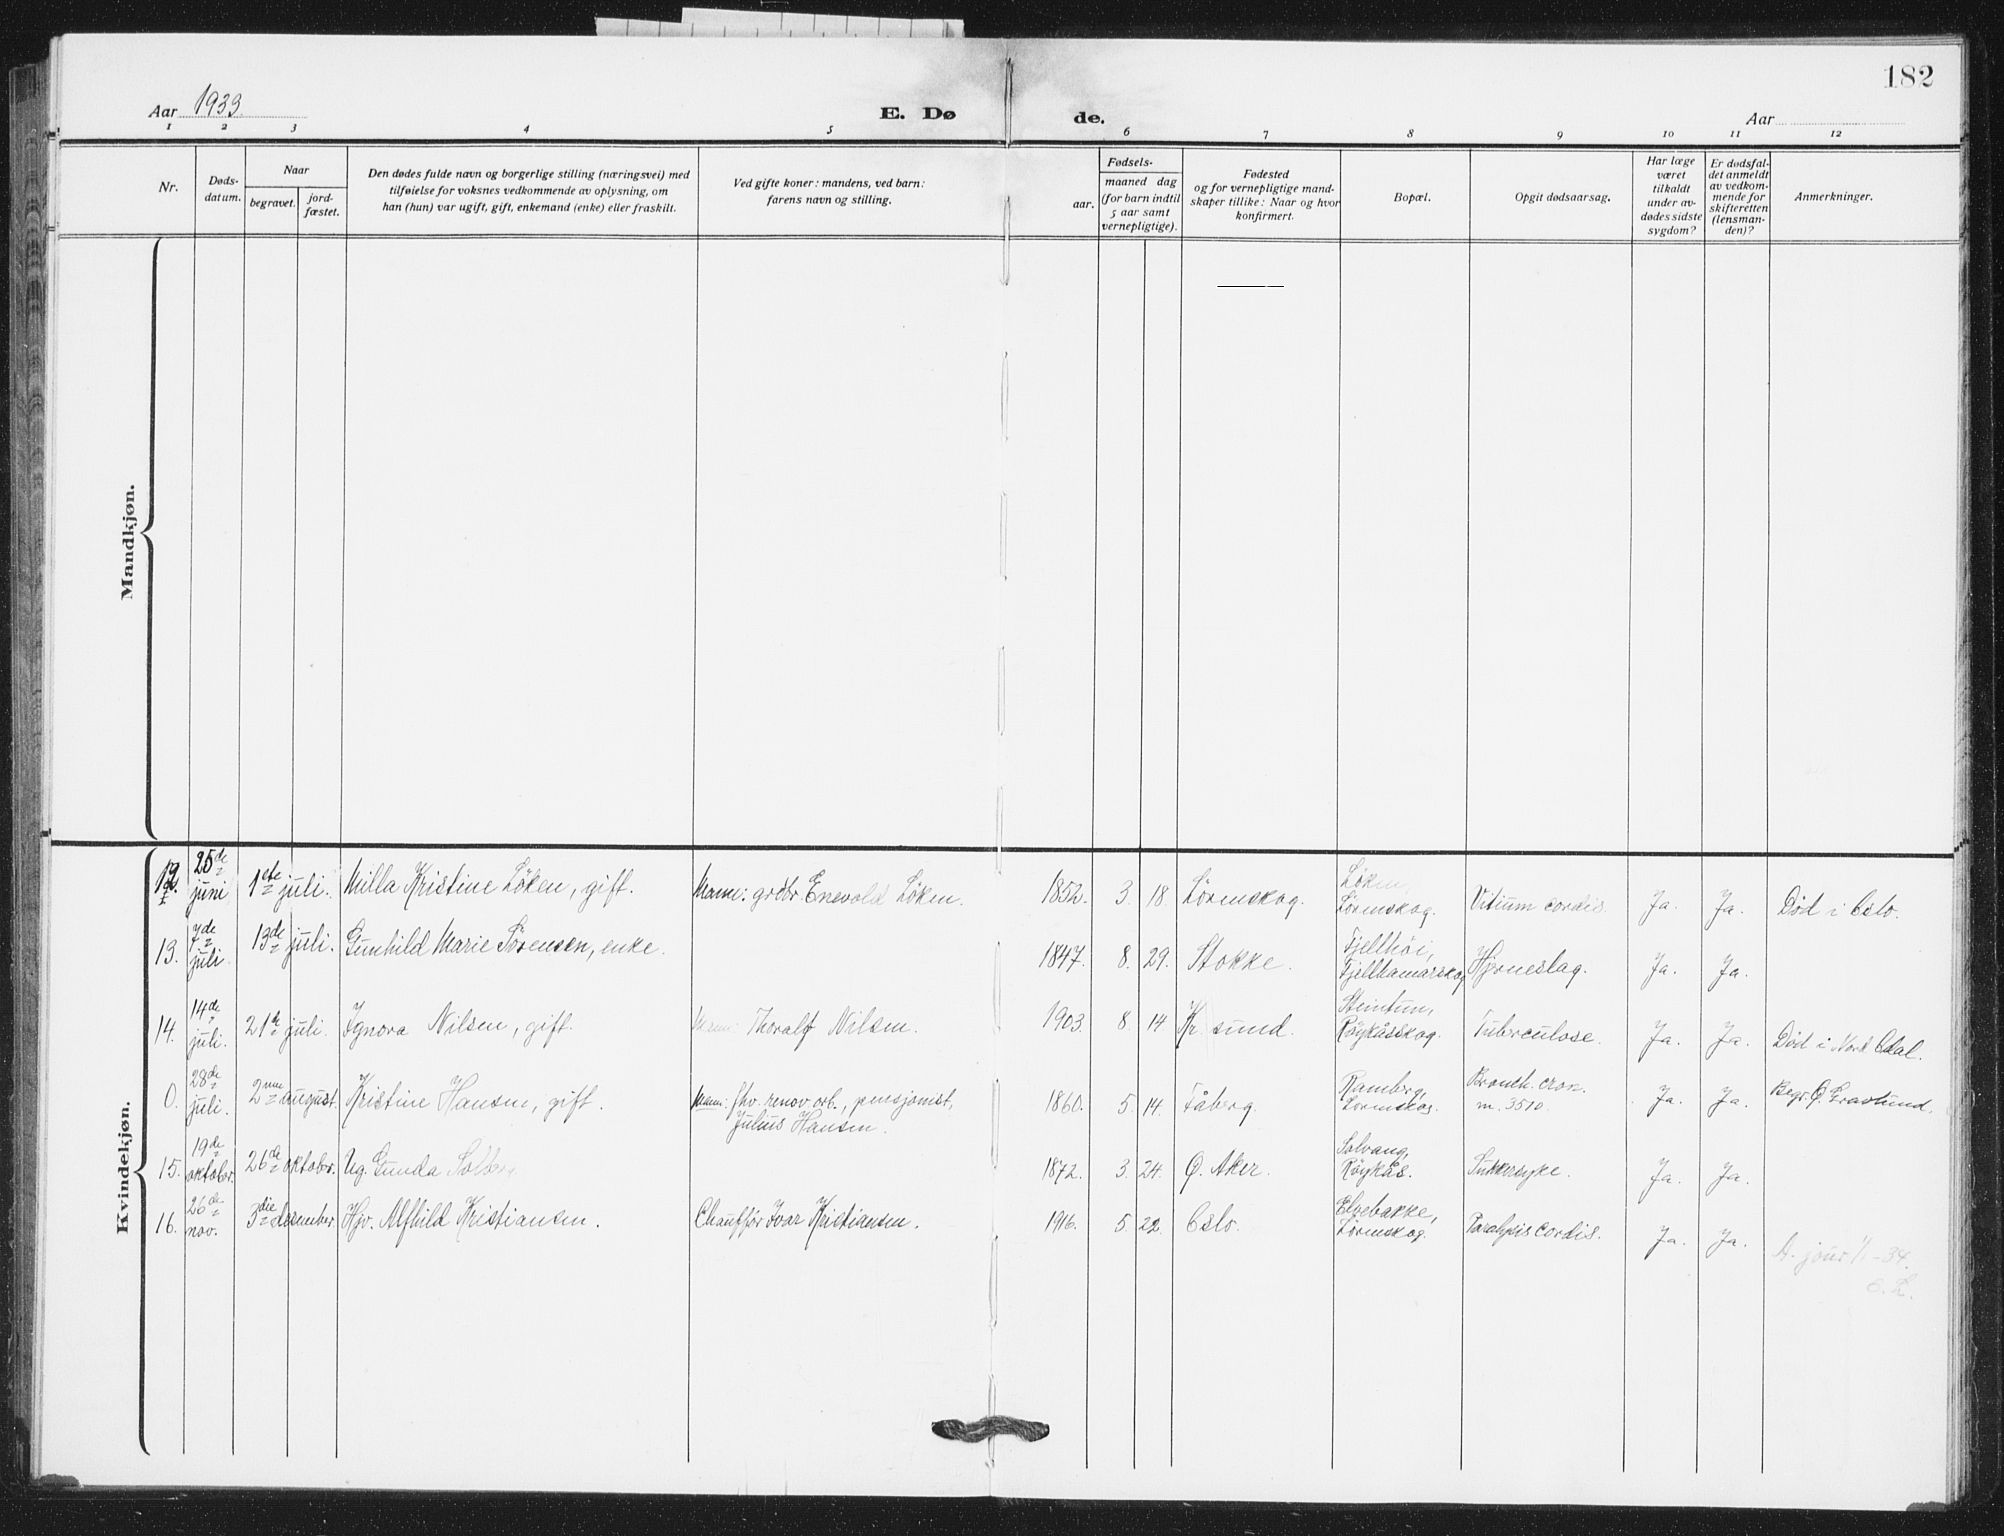 182
Aar 1933.
E. Dø de.
Aar
1 2 3 4 5 6 7 8 9 10 11 12
Nr.
Døds-
datum.
Naar
begravet.
jord-
fæstet.
Den dødes fulde navn og borgerlige stilling (næringsvei) med
tilføielse for voksnes vedkommende av oplysning, om
han (hun) var ugift, gift, enkemand (enke) eller fraskilt.
Ved gifte koner: mandens, ved barn:
farens navn og stilling.
Fødsels-
aar.
maaned dag
(for barn indtil
5 aar samt
vernepligtige).
Fødested
og for vernepligtige mand-
skaper tillike: Naar og hvor
konfirmert.
Bopæl.
Opgit dødsaarsag.
Har læge
været
tilkaldt
under av-
dødes sidste
sygdom?
Er dødsfal-
det anmeldt
av vedkom-
mende for
skifteretten
(lensman-
den)?
Anmerkninger.
Mandkjøn.
Kvindekjøn.
12. 25de juni 1ste juli. Milla Kristine Løken, gift. Mann: grdbr. Enevold Løken. 1852. 3. 18. Lörenskog. Løken, Lörenskog. Vitium cordis. Ja. Ja. Död i Oslo.
13. 7de juli. 13de juli. Gunhild Marie Sørensen, enke. 1847. 8. 29. Stokke. Fjellhöi, Fjellhamarskog Hjerneslag. Ja. Ja.
14. 14de juli. 21de juli. Ignora Nilsen, gift. Mann: Thoralf Nilsen. 1903. 8 14 Kr. sund. Steintun, Röykåsskog. Tuberculose. Ja. Ja. Död i Nord Odal.
0. 28de juli. 2nen august. Kristine Hansen, gift. Mann: fhv. renov. arb., pensjonist, Julius Hansen. 1860. 5. 14. Fåberg. Ramberg, Lörenskog. Bronch. cron. m. 3510. Ja. Ja. Begr. Ø. Gravlund.
15. 19de oktober. 26de oktober. Ug. Gunda Solberg. 1872. 3. 24. Ø. Aker. Solvang, Röykås. Sukkersyke. Ja. Ja.
16. 26de nov. 3die desember. Hjv. Alfhild Kristiansen. Chaufför Ivar Kristiansen. 1916. 5 22 Oslo. Elgebakke, Lörenskog. Paralysis cordis. Ja. Ja.
A. jour 1/1-34.